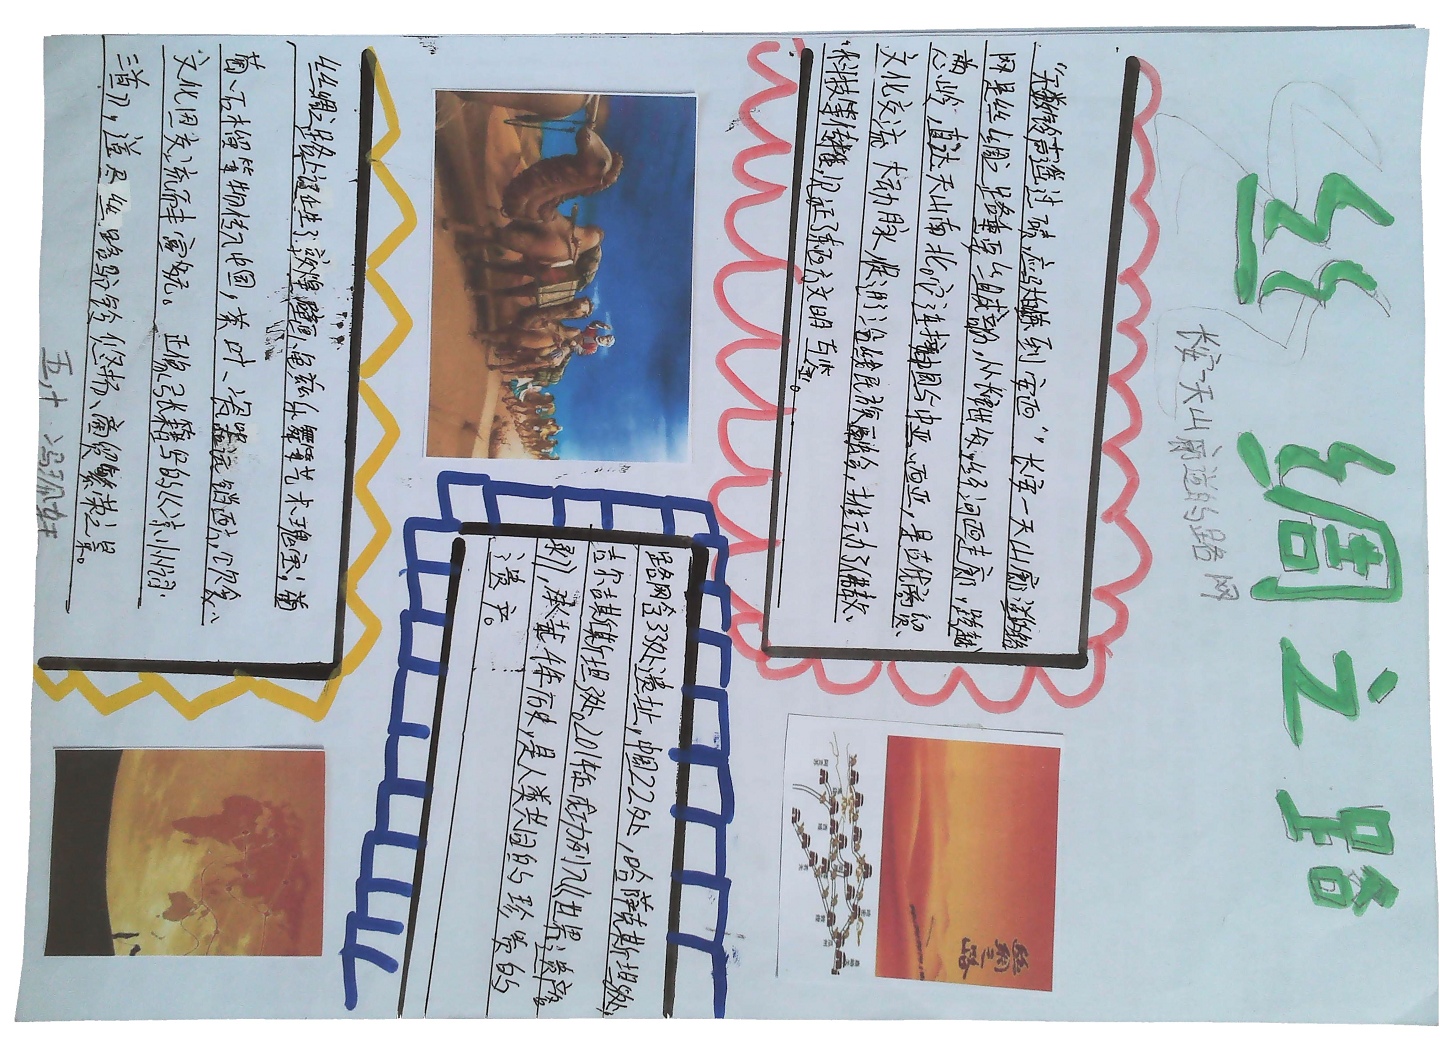 丝绸之路
长安一天山廊道的路网
“无数铃声遥过碛，应驮白练到安西”长安一天山廊道的路
网是丝绸之路重要组成部份，从长安出发，经河西走廊，跨越
葱岭，直达天山南北。它连接中国与中亚、西亚，是古代商贸、
文化交流大动脉，促进了沿线民族融合，推动了佛教、
科技等传播，见证了东西方文明互鉴。
丝绸之路
路网含33处遗址，中国22处，哈萨克斯坦8处，
吉尔吉斯斯坦3处。2014年成功列入《世界遗产名
录》，承载千年历史，是人类共同的珍贵的
遗产。
丝绸之路上诞生了敦煌壁画、龟兹乐舞等艺术瑰宝；葡
萄、石榴等物传入中国，茶叶、瓷器远销西方，饮食、
文化因交流而丰富多元。正像张籍写的《凉州词
三首》，道尽丝路驼铃悠扬、商贸繁荣之景。
五，十 冯珮轩